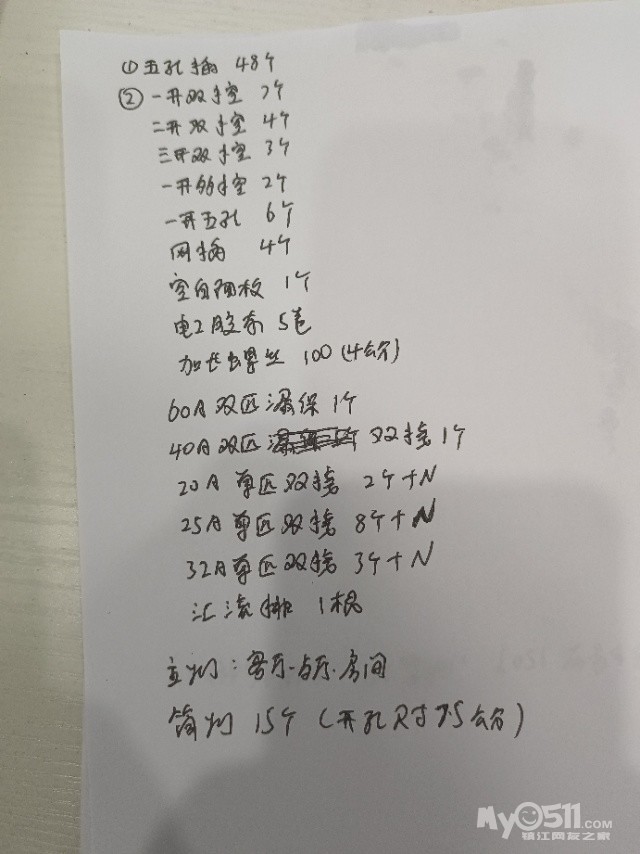 ① 五孔插 48个
② 一开双控 7个
二开双控 4个
三开双控 3个
一开单控 2个
一开五孔 6个
网插 4个
空白面板 1个
电工胶布 5卷
加长螺丝 100 (4公分)
60A 双匹漏保 1个
40A双匹 双接 1个
20A 单匹双接 2个+N
25A单匹双接 8个+N
32A单匹双接 3个+N
汇流排 1根
主灯:客厅.与厅.房间
筒灯 15个 (开孔尺寸7.5公分)
My0511.com
镇江网友之家